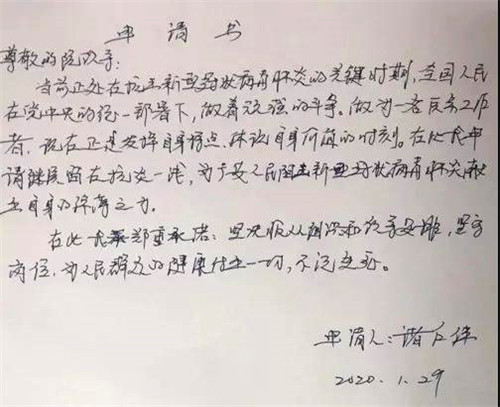 申请书
尊敬的院领导:
当前正处在抗击新型冠状病毒肺炎的关键时期,全国人民
在党中央的统一部署下,做着顽强的斗争。做为一名医务工作
者,现在正是发挥自身特点、体现自身价值的时刻。在此我申
请继续留在抗炎一线,为广大人民阻击新型冠状病毒肺炎献
出自身的绵薄之力。
在此我郑重承诺:坚决服从组织和领导安排,坚守
岗位,为人民群众的健康付出一切,不论生死。
申请人:诸
2020.1.29